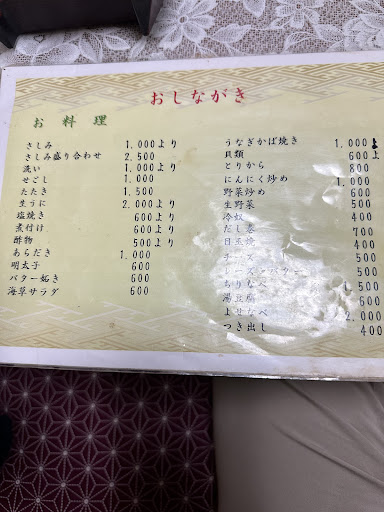 おしながき
お料理
さしみ 1,000より
さしみ盛り合わせ 2,500
洗い 1,000より
せごし 1,000
たたき 1,500
生うに 2,000より
塩焼き 600より
煮付け 600より
酢物 500より
あらだき 1,000
明太子 600
バター焼き 600
海草サラダ 600
うなぎかば焼き 1,000
貝類 600より
とりから 800
にんにく炒め 1,000
野菜炒め 600
生野菜 500
冷奴 400
だし巻 700
目玉焼 400
チーズ 500
レーズンバター 500
ちりなべ 1,500
湯豆腐 600
よせなべ 2,000
つき出し 400